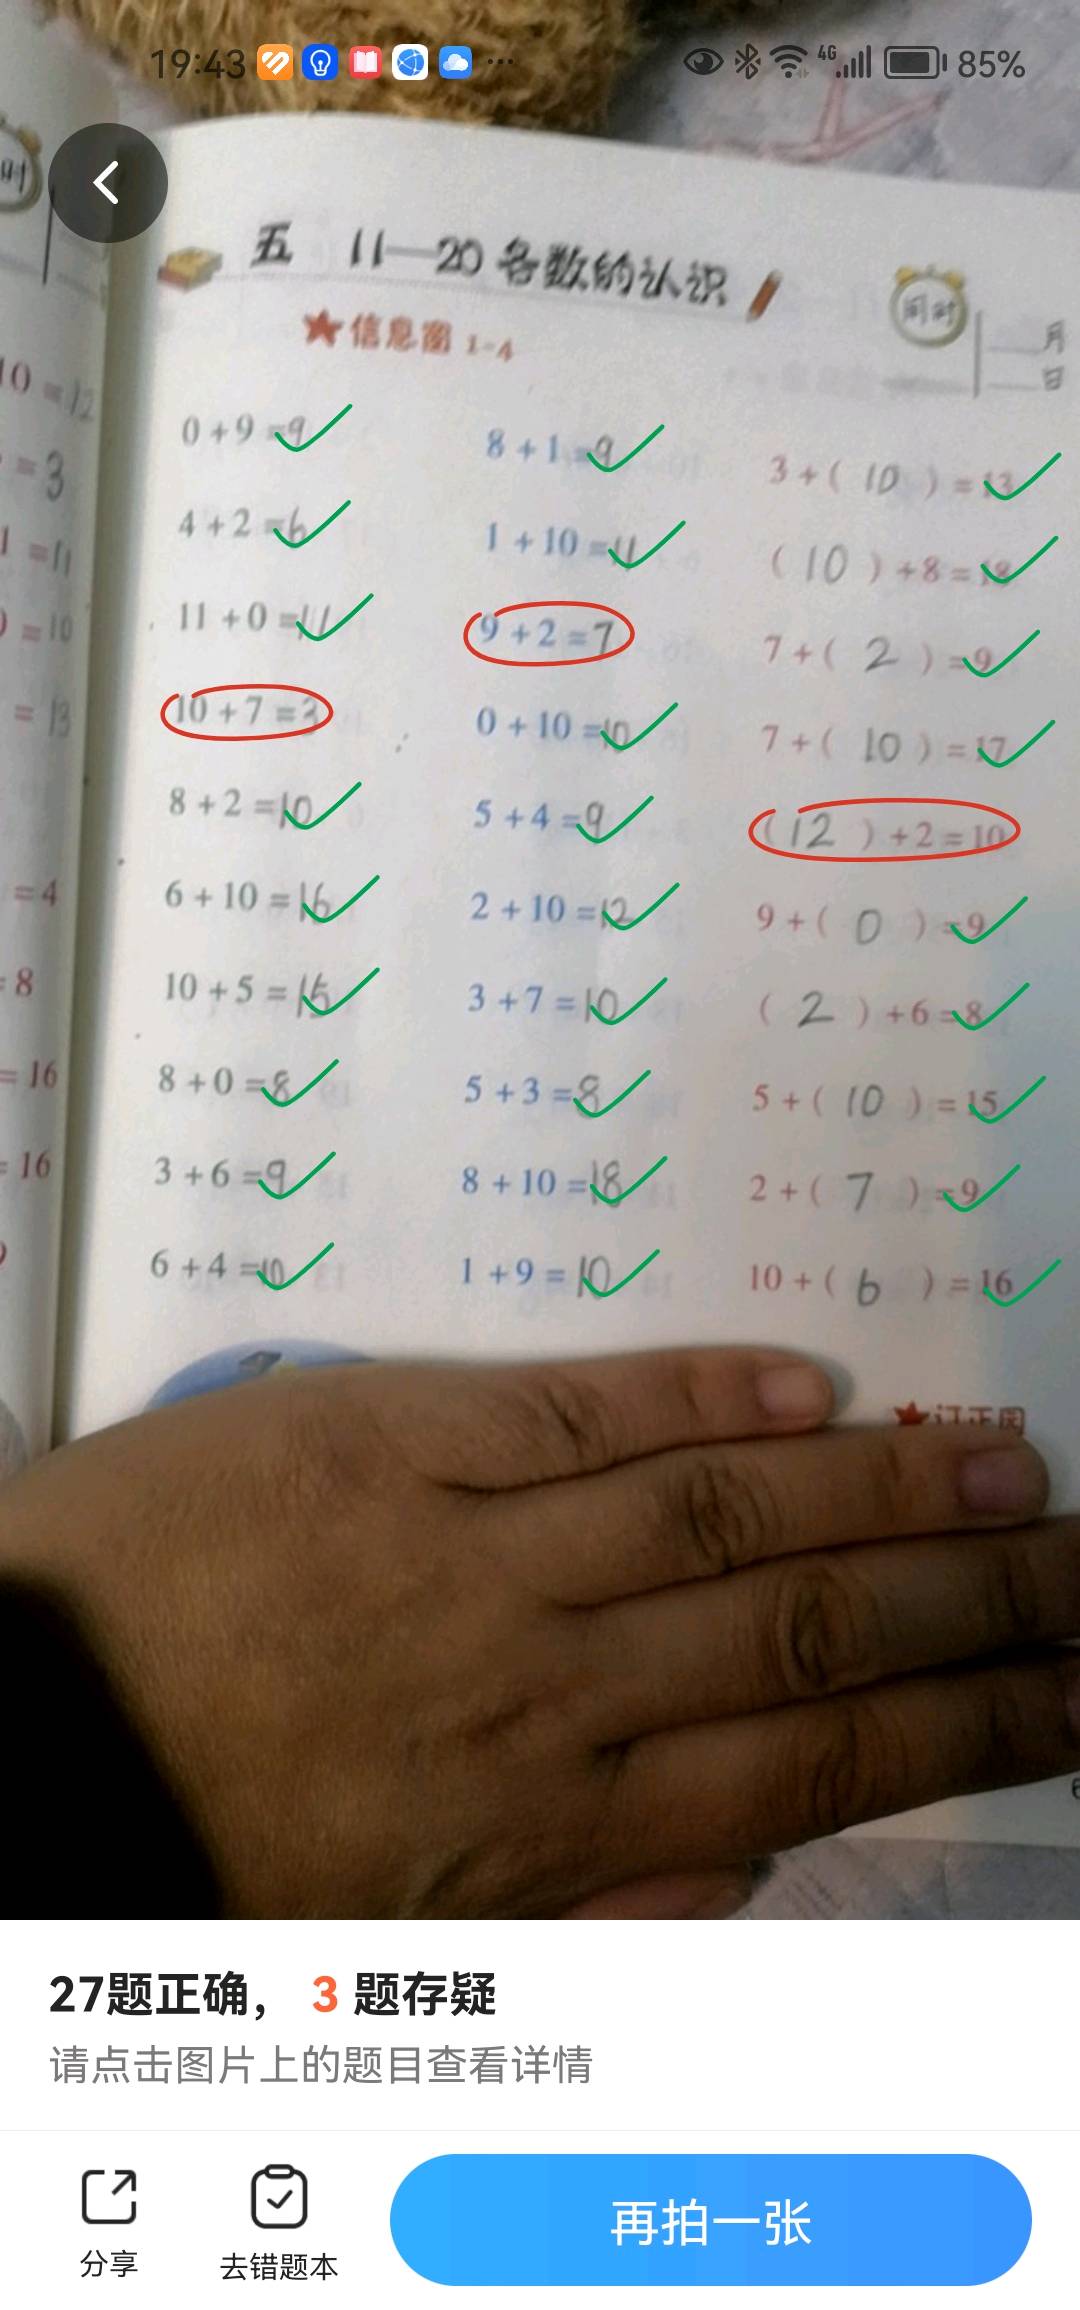 19:43 ... 4G 85%
时
五 11—20各数的认识
用时
月
日
信息窗 1-4
10=12
=3
1=11
=10
=13
=4
=8
=16
=16
0+9=9 8+1=9 3+(10)=13
4+2=6 1+10=11 (10)+8=18
11+0=11 9+2=7 7+(2)=9
10+7=3 0+10=10 7+(10)=17
8+2=10 5+4=9 (12)+2=10
6+10=16 2+10=12 9+(0)=9
10+5=15 3+7=10 (2)+6=8
8+0=8 5+3=8 5+(10)=15
3+6=9 8+10=18 2+(7)=9
6+4=10 1+9=10 10+(6)=16
订正园
27题正确， 3 题存疑
请点击图片上的题目查看详情
分享
去错题本
再拍一张